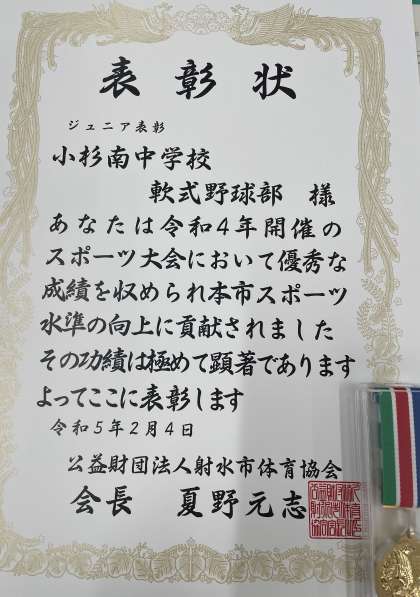 表彰状
ジュニア表彰
小杉南中学校
軟式野球部 様
あなたは令和4年開催の
スポーツ大会において優秀な
成績を収められ本市スポーツ
水準の向上に貢献されました
その功績は極めて顕著であります
よってここに表彰します
令和5年2月4日
公益財団法人射水市体育協会
会長 夏野元志